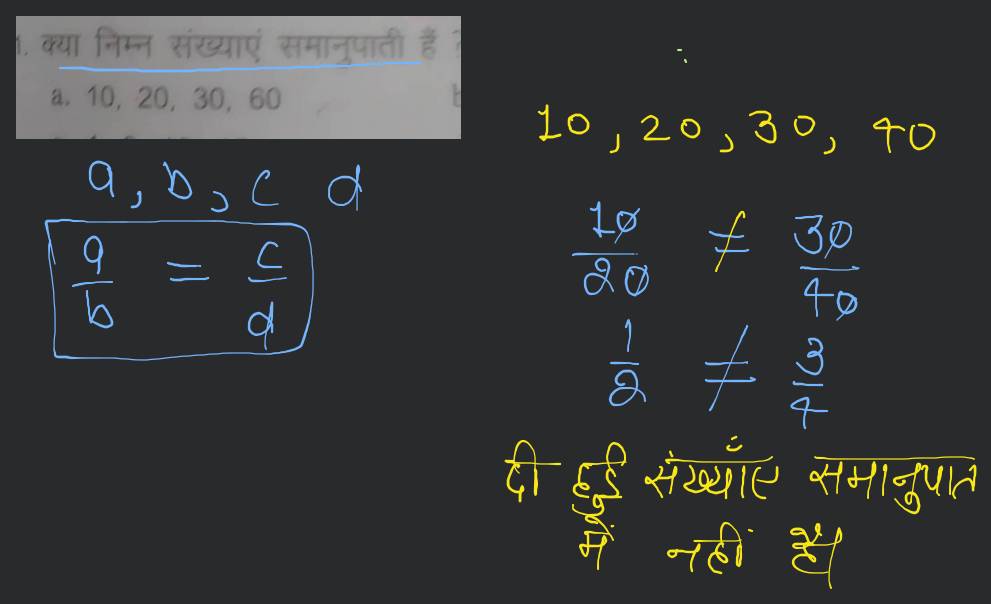 1. क्या निम्न संख्याएं समानुपाती हैं ?
a. 10, 20, 30, 60
a, b, c d
a/b = c/d
10, 20, 30, 40
10/20 ≠ 30/40
1/2 ≠ 3/4
दी हुई संख्याँए समानुपात
में नहीं हैं।